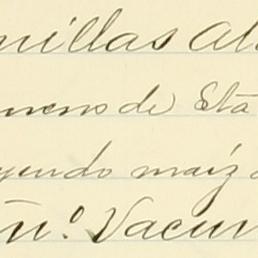 millas al
meno de Sta
yendo maíz
nº. Vacun